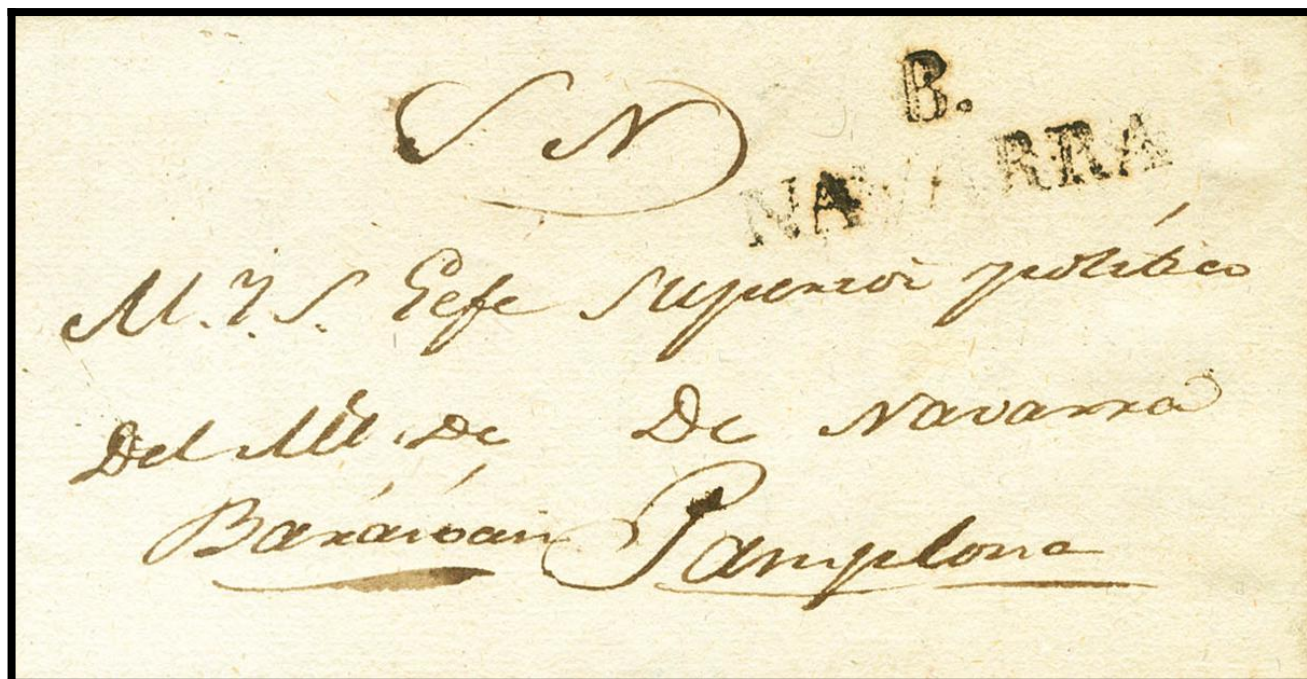 S N
B.
NAVARRA
M. Y. S. Gefe Superior político
Del Alld. De De Navarra
Barásoain Pamplona